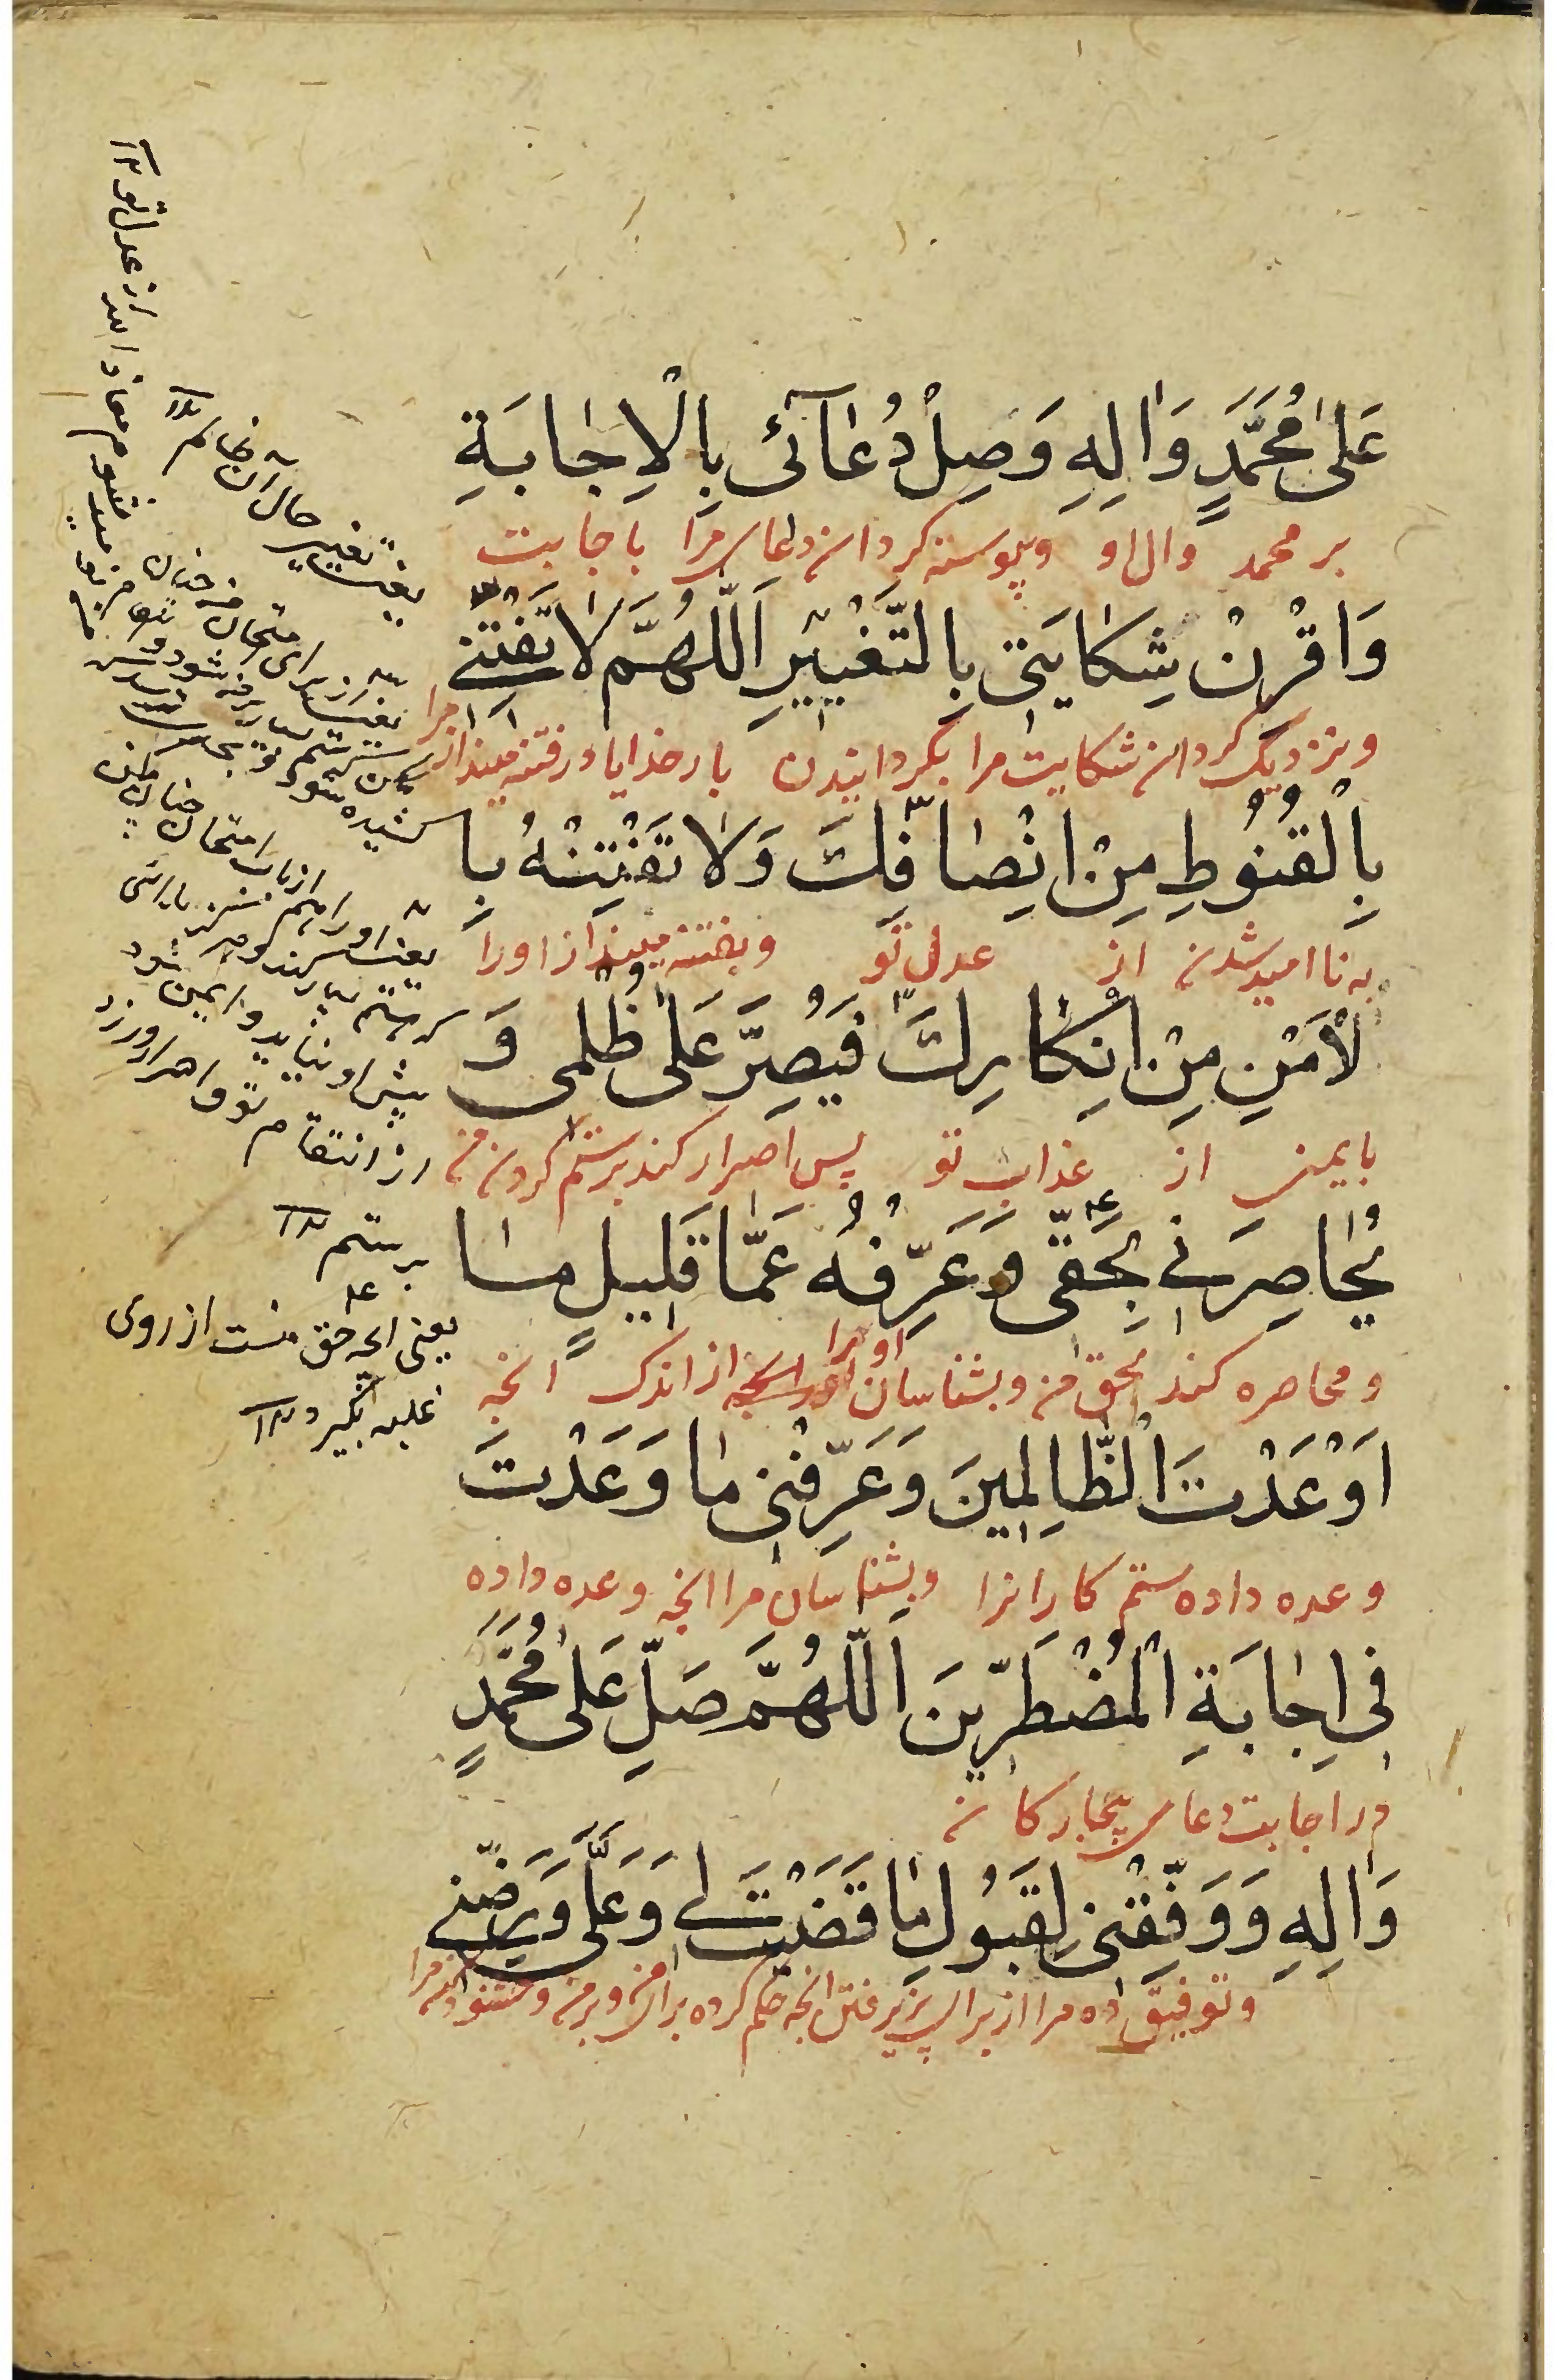 عَلىٰ مُحَمَّدٍ وَاٰلِهِ وَصِلْ دُعٰآئى بِالْاِجٰابَةِ
بر محمد وال او وپیوسته کردان دعای مرا باجابت
وَاقْرِنْ شِكٰايَتى بِالتَّغْييرِ اَللّٰهُمَّ لٰا تَفْتِنّى
ونزدیک کردان شکایت مرا بکردانیدن بارخدایا درفتنه مینداز مرا
بِالْقُنُوطِ مِنْ اِنْصٰافِكَ وَلٰا تَفْتِنْهُ بِا
به نا امید شدن از عدل تو وبفتنه مینداز اورا
لْاَمْنِ مِنْ اِنْكٰارِكَ فَيُصِرَّ عَلىٰ ظُلْمى وَ
بایمنی از عذاب تو پس اصرار کند برستم کردن من
يُحٰاصِرَنى بِحَقّى وَعَرِّفْهُ عَمّٰا قَليلٍ مٰا
ومحاصره کند بحق من وبشناسان اورا از اندک انچه
اَوْعَدْتَ الظّٰالِمينَ وَعَرِّفْنى مٰا وَعَدْتَ
وعده داده ستم کارانرا وبشناسان مرا انچه وعده داده
فى اِجٰابَةِ الْمُضْطَرّينَ اَللّٰهُمَّ صَلِّ عَلىٰ مُحَمَّدٍ
در اجابت دعای بیچارکان
وَاٰلِهِ وَوَفِّقْنى لِقَبُولِ مٰا قَضَيْتَ لى وَعَلَىَّ وَرَضِّنى
وتوفیق ده مرا از برای پذیرفتن انچه حکم کرده برای من وبر من وخشنود کن مرا
یعنی تغییر حال آن ظالم ۱۲
یعنی اورا هم از باب امتحان چنان مکن
پیش او نیاید وایمن شود
از انتقام تو واصرار ورزد
برستم ۱۲
یعنی انچه حق منست از روی
غلبه بگیرد ۱۲
از عدل تو ۱۲